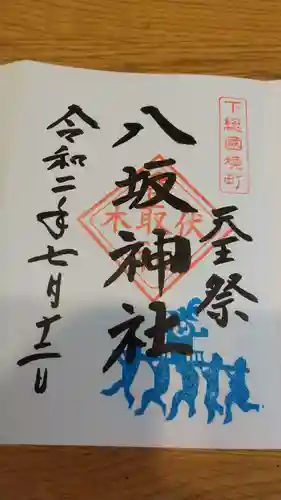 下総國境町
天王祭
八坂神社
伏取木
令和二年七月十二日